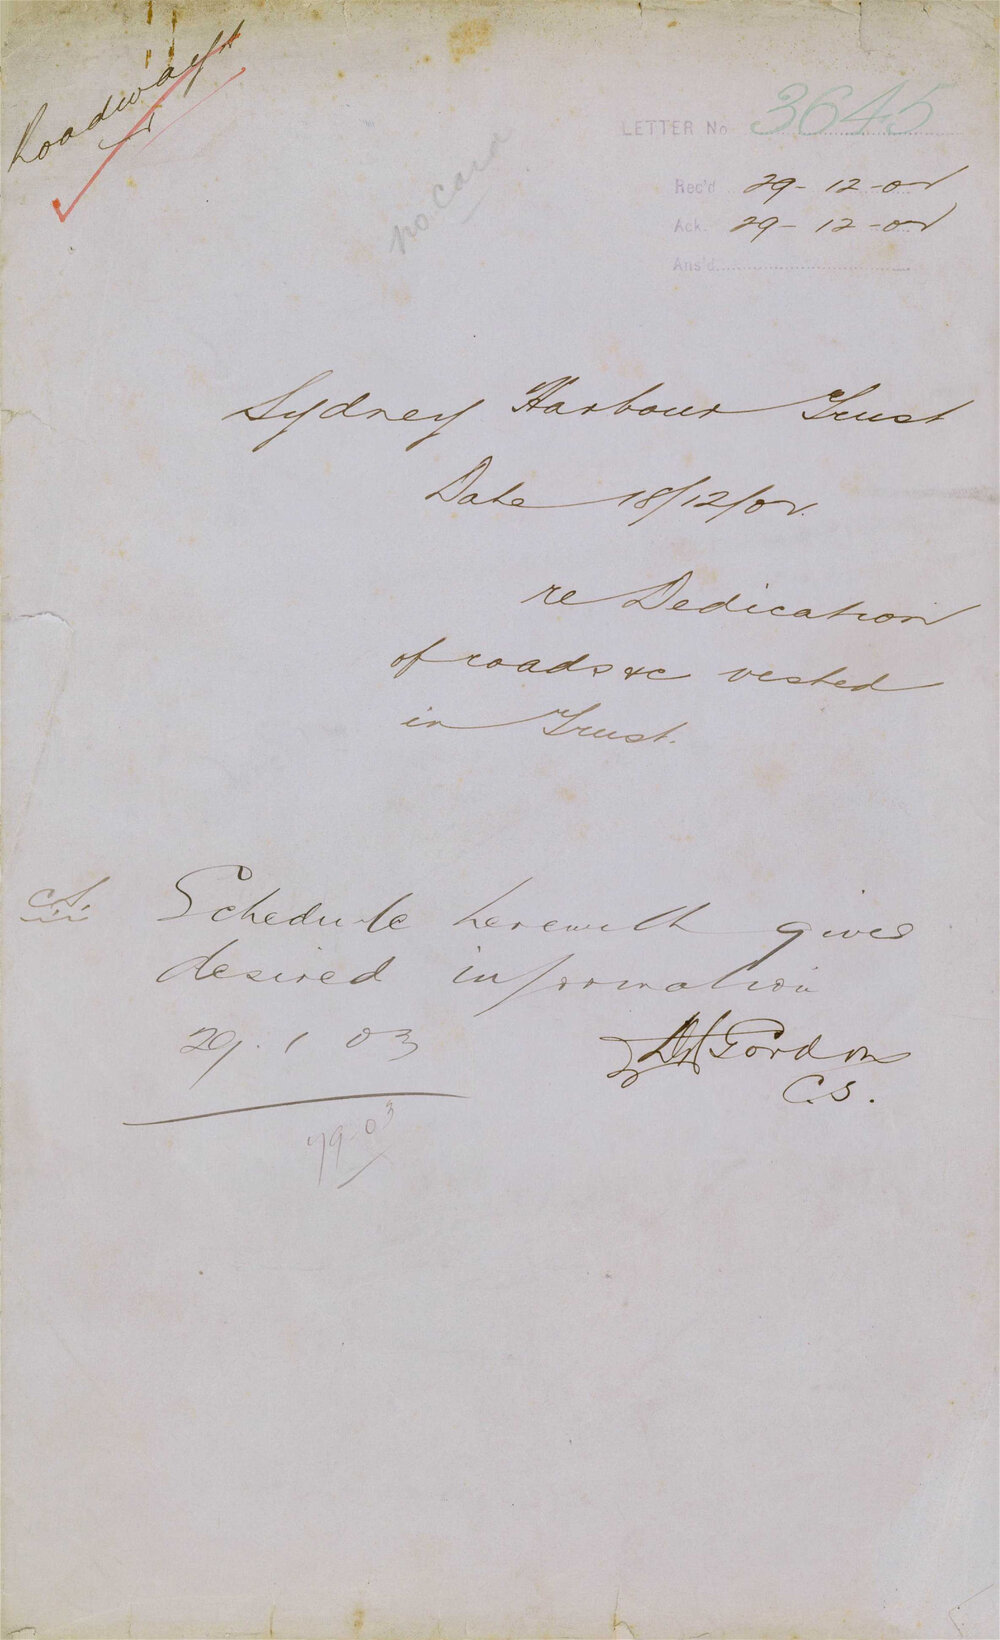 Roadways
no card
LETTER No 3645
Rec'd 29-12-02
Ack. 29-12-02
Ans'd
Sydney Harbour Trust
Date 18/12/02.
re Dedication
of roads &c vested
in Trust.
C.S. Schedule herewith gives
desired information
29.1.03
Gordon
C.S.